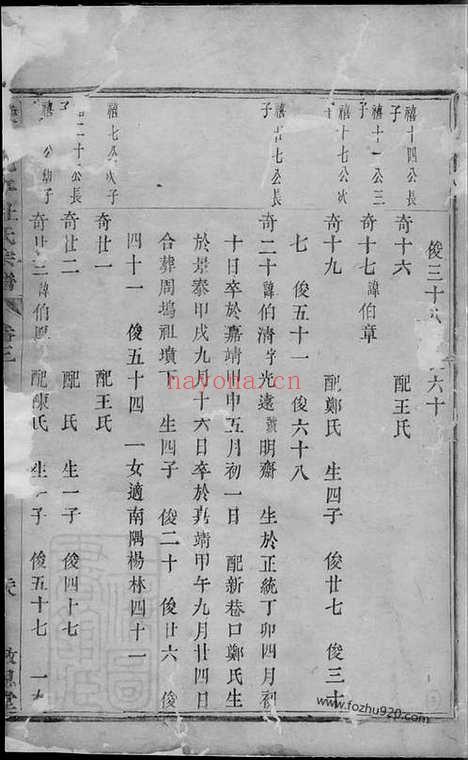 俊三十
六十
禧十四公長
子
奇十六 配王氏
禧十一公三
子
奇十七諱伯章
禧十七公次
奇十九 配鄭氏 生四子 俊廿七 俊三十
七 俊五十一 俊六十八
禧廿七公長
子
奇二十諱伯清字光遠號明齋 生於正統丁卯四月初
十日卒於嘉靖 申五月初一日 配新巷口鄭氏生
於景泰甲戌九月十六日卒於嘉靖甲午九月廿四日
合葬周塢祖墳下 生四子 俊二十 俊廿六 俊
四十一 俊五十四 一女適南隅楊林四十一
禧七公次子
奇廿一 配王氏
二十一公長
子
奇廿二 配 氏 生一子 俊四十七
禧 公幼子
奇廿三諱伯 配陳氏 生一子 俊五十七
杜氏宗譜 卷三
nayona.cn
www.fozhu920.com